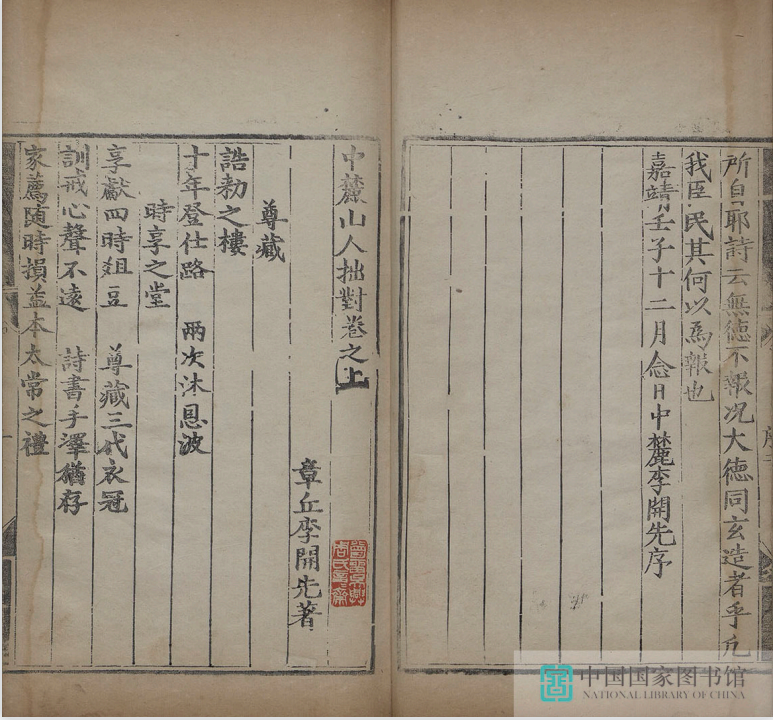 所自耶詩云無德不報况大德同玄造者乎凢
我臣民其何以爲報也
嘉靖壬子十二月念日中麓李開先序
中麓山人拙對卷之上
章丘李開先著
尊藏
誥勑之樓
十年登仕路 兩次沐恩波
時享之堂
享獻四時爼豆 尊藏三代衣冠
訓戒心聲不遠 詩書手澤猶存
家薦隨時損益本太常之禮
中国国家图书馆
NATIONAL LIBRARY OF CHINA